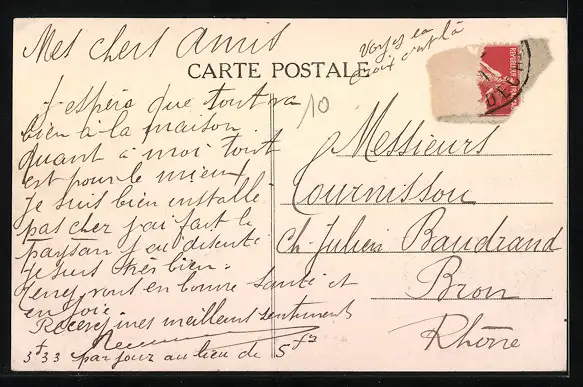 Mes chers Amis
Voyez la
Croix c'est là
CARTE POSTALE
J'espère que tout va
bien à la maison
quant à moi tout
est pour le mieux
Je suis bien installé
pas cher j'ai fait le
paysan
Je suis très bien.
Tenez vous en bonne santé et
en joie
Recevez mes meilleurs sentiments
3f33 par jour au lieu de 5f
10
Messieurs
Cournisson
Ch. Julien Baudrand
Bron
Rhône